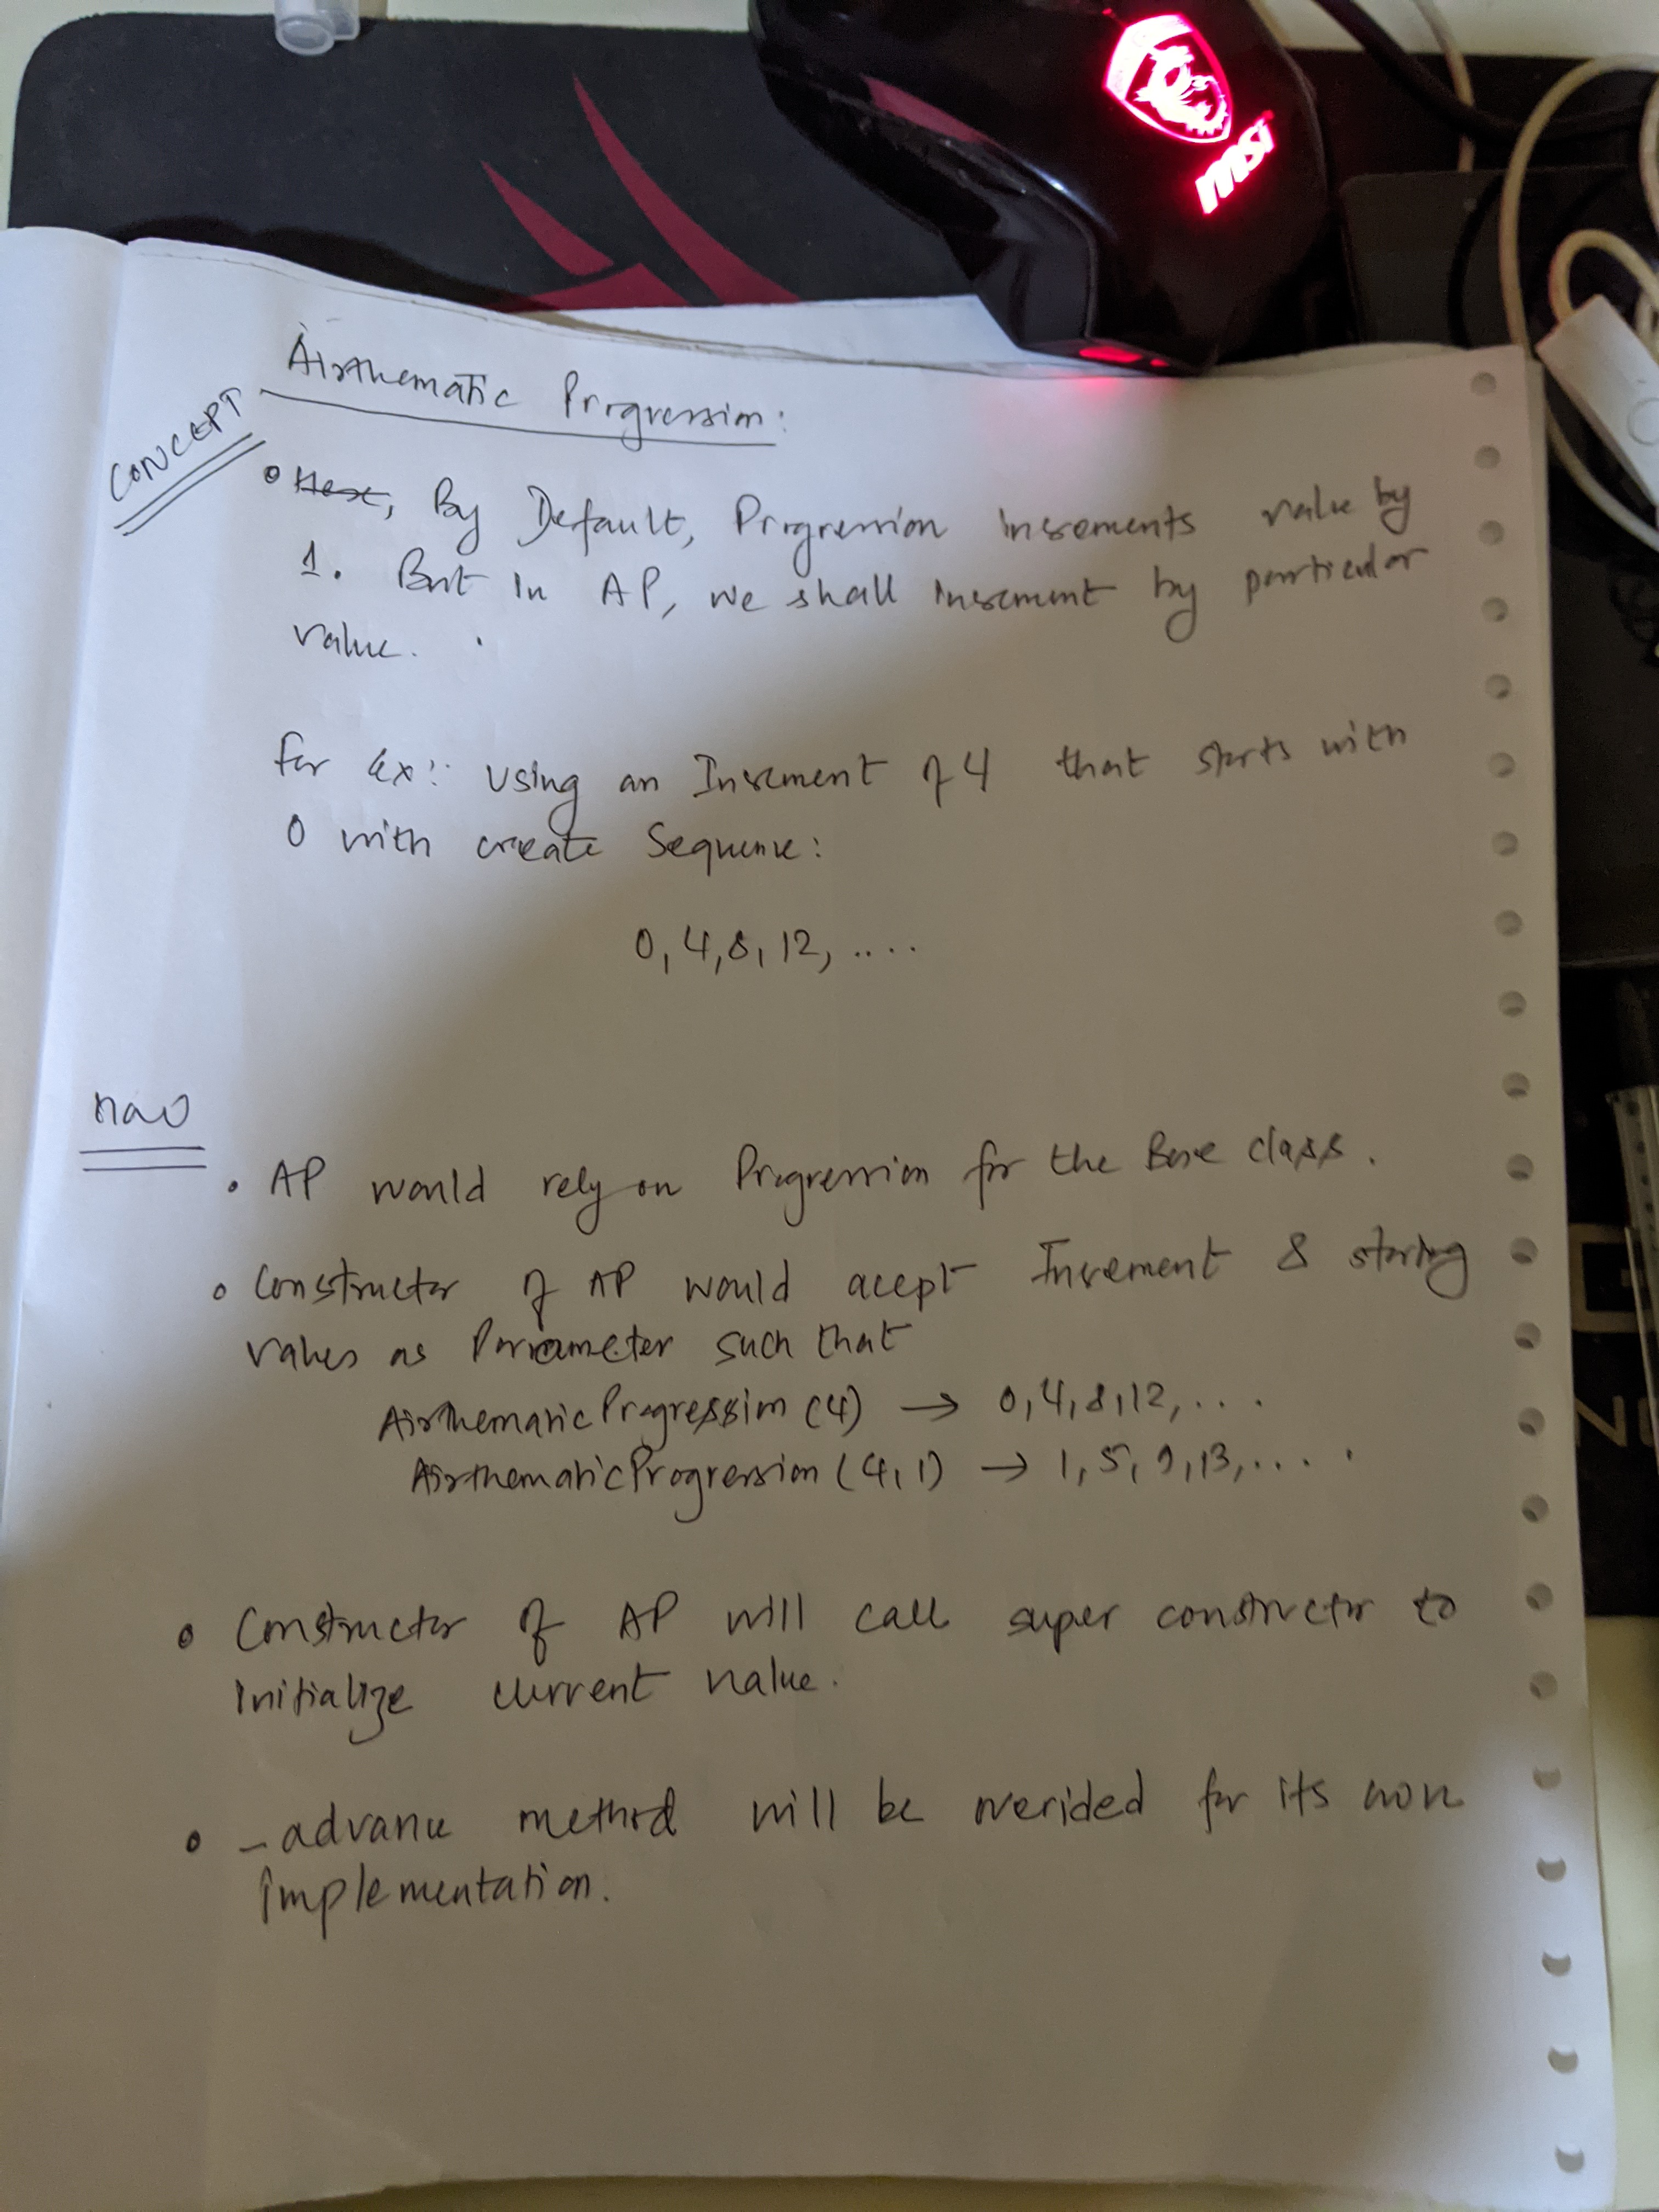 msi
Airthematic Progression:
CONCEPT
Here, By Default, Progression increments value by
1. But in AP, we shall increment by particular
value.
for Ex:: Using an Increment of 4 that starts with
0 with create Sequence:
0, 4, 8, 12, ....
• AP would rely on Progression for the Base class.
• Constructor of AP would acept Increment & starting
values as Parameter such that
Airthematic Progression (4) → 0, 4, 8, 12, ....
AirthematicProgression (4, 1) → 1, 5, 9, 13, ....
• Constructor of AP will call super constructor to
initialize current value.
• _advance method will be overided for its own
implementation.